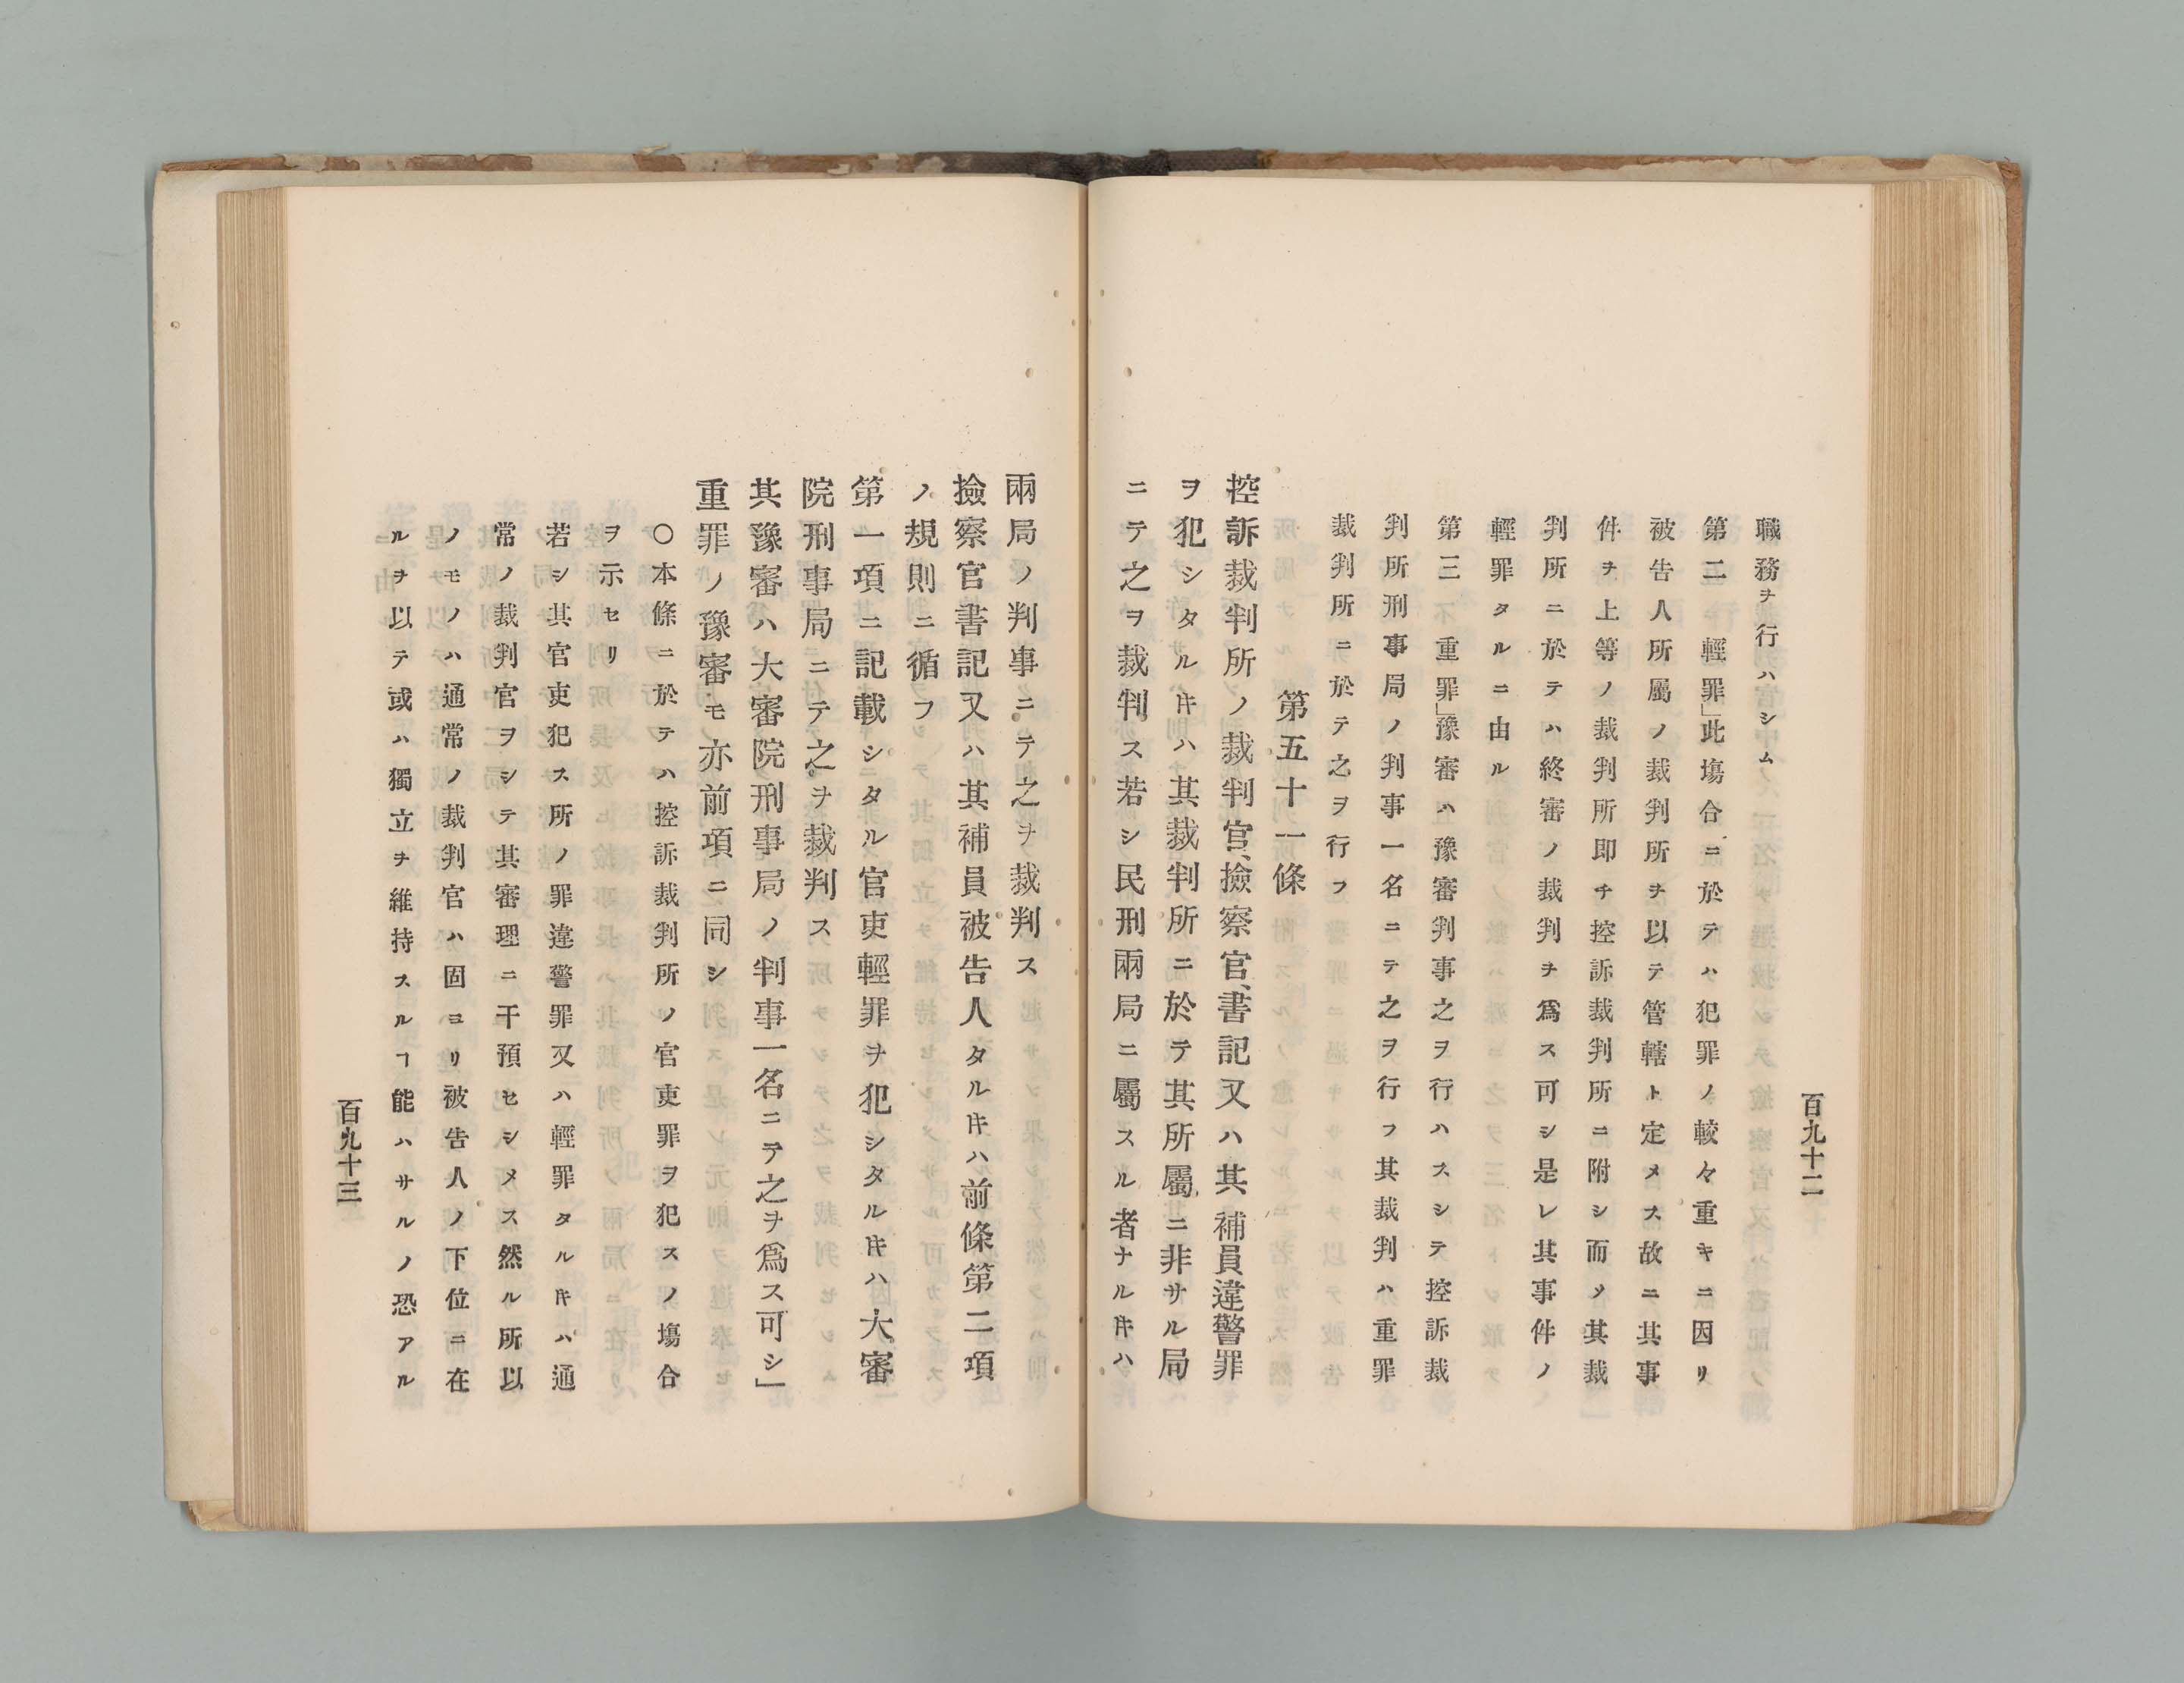 百九十二
職務ヲ行ハシム
第二 輕罪」此塲合ニ於テハ犯罪ノ較々重キニ因リ
被告人所屬ノ裁判所ヲ以テ管轄ト定メス故ニ其事
件ヲ上等ノ裁判所即チ控訴裁判所ニ附シ而〆其裁
判所ニ於テハ終審ノ裁判ヲ爲ス可シ是レ其事件ノ
輕罪タルニ由ル
第三 重罪」豫審ハ豫審判事之ヲ行ハスシテ控訴裁
判所刑事局ノ判事一名ニテ之ヲ行フ其裁判ハ重罪
裁判所ニ於テ之ヲ行フ
第五十一條
控訴裁判所ノ裁判官、撿察官、書記又ハ其補員違警罪
ヲ犯シタルキハ其裁判所ニ於テ其所屬ニ非サル局
ニテ之ヲ裁判ス若シ民刑兩局ニ屬スル者ナルキハ
兩局ノ判事ニテ之ヲ裁判ス
撿察官書記又ハ其補員被告人タルキハ前條第二項
ノ規則ニ循フ
第一項ニ記載シタル官吏輕罪ヲ犯シタルキハ大審
院刑事局ニテ之ヲ裁判ス
其豫審ハ大審院刑事局ノ判事一名ニテ之ヲ爲ス可シ」
重罪ノ豫審モ亦前項ニ同シ
〇本條ニ於テハ控訴裁判所ノ官吏罪ヲ犯スノ塲合
ヲ示セリ
若シ其官吏犯ス所ノ罪違警罪又ハ輕罪タルキハ通
常ノ裁判官ヲシテ其審理ニ干預セシメス然ル所以
ノモノハ通常ノ裁判官ハ固ヨリ被告人ノ下位ニ在
ルヲ以テ或ハ獨立ヲ維持スルヿ能ハサルノ恐アル
百九十三